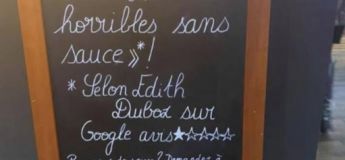 horribles sans
sauce »*!
* Selon Edith
Duboz sur
Google avis ★☆☆☆☆